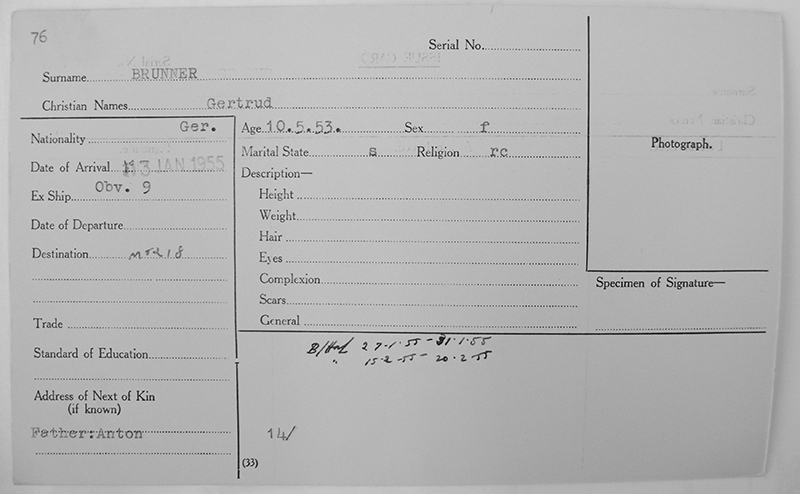 76
Serial No.
Surname BRUNNER
Christian Names Gertrud
Nationality Ger.
Date of Arrival 13 JAN 1955
Ex Ship Obv. 9
Date of Departure
Destination
Trade
Standard of Education
Address of Next of Kin
(if known)
Father:Anton
Age 10.5.53. Sex f
Marital State s Religion rc
Description—
Height
Weight
Hair
Eyes
Complexion
Scars
General
27.1.55 - 31.1.55
" 15.2.55 - 20.2.55
14/
(33)
Photograph.
Specimen of Signature—